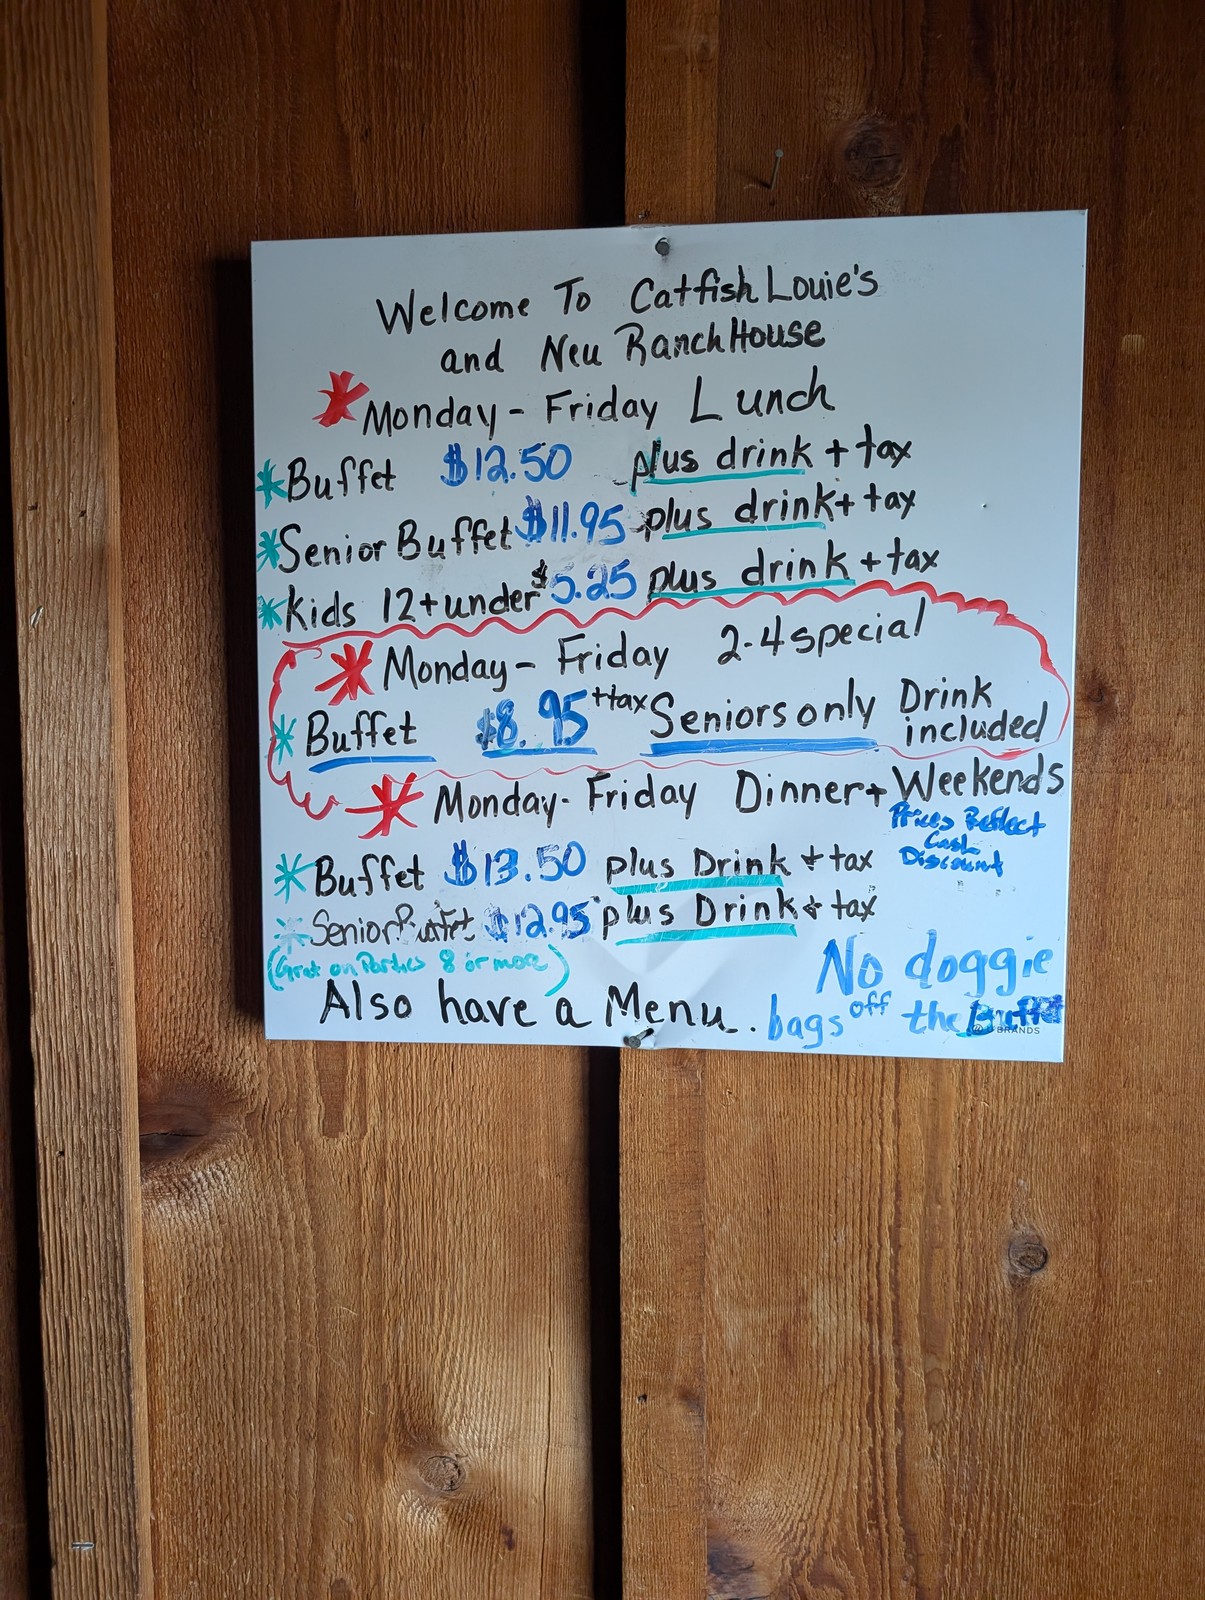 Welcome To Catfish Louie's
and Neu RanchHouse
* Monday - Friday Lunch
* Buffet $12.50 plus drink + tax
* Senior Buffet $11.95 plus drink + tax
* Kids 12 + under $5.25 plus drink + tax
* Monday - Friday 2-4 special
* Buffet $8.95 + tax Seniors only Drink included
* Monday - Friday Dinner + Weekends
Prices Reflect
Cash
Discount
* Buffet $13.50 plus Drink + tax
* Senior Buffet $12.95 plus Drink + tax
(Grat on Parties 8 or more)
Also have a Menu.
No doggie
bags off the Buffet
BRANDS